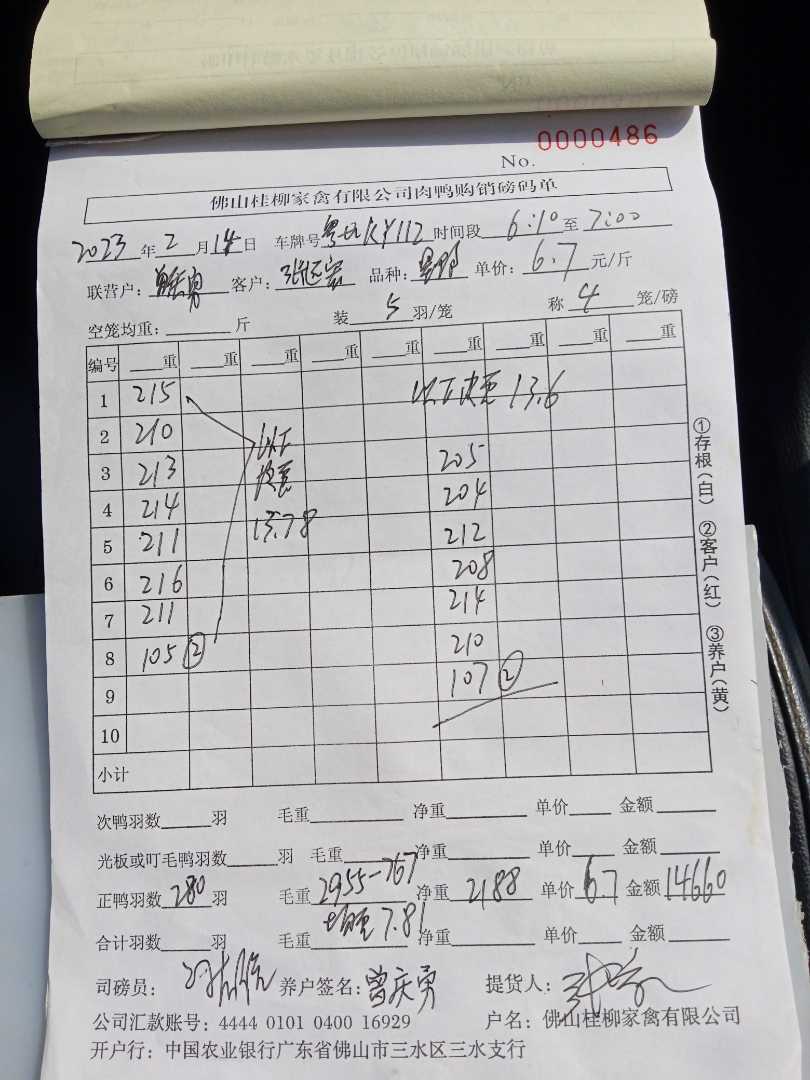 0000486
No.
佛山桂柳家禽有限公司肉鸭购销磅码单
2023年2月14日 车牌号 KY112 时间段 6:10至7:00
联营户: 客户: 品种: 单价: 6.7元/斤
空笼均重: 斤 装5羽/笼 称4笼/磅
编号 重 重 重 重 重 重 重 重 重
1 215 以下 13.6
2 210 以下
3 213 205
4 214 204
5 211 13.78 212
6 216 208
7 211 214
8 105 ② 210
9 107 ②
10
小计
次鸭羽数 羽 毛重 净重 单价 金额
光板或叮毛鸭羽数 羽 毛重 净重 单价 金额
正鸭羽数280羽 毛重2955-767 净重2188 单价6.7 金额14660
均重7.81
合计羽数 羽 毛重 净重 单价 金额
司磅员: 养户签名: 曾庆勇 提货人:
公司汇款账号: 4444 0101 0400 16929 户名: 佛山桂柳家禽有限公司
开户行: 中国农业银行广东省佛山市三水区三水支行
①存根(白) ②客户(红) ③养户(黄)